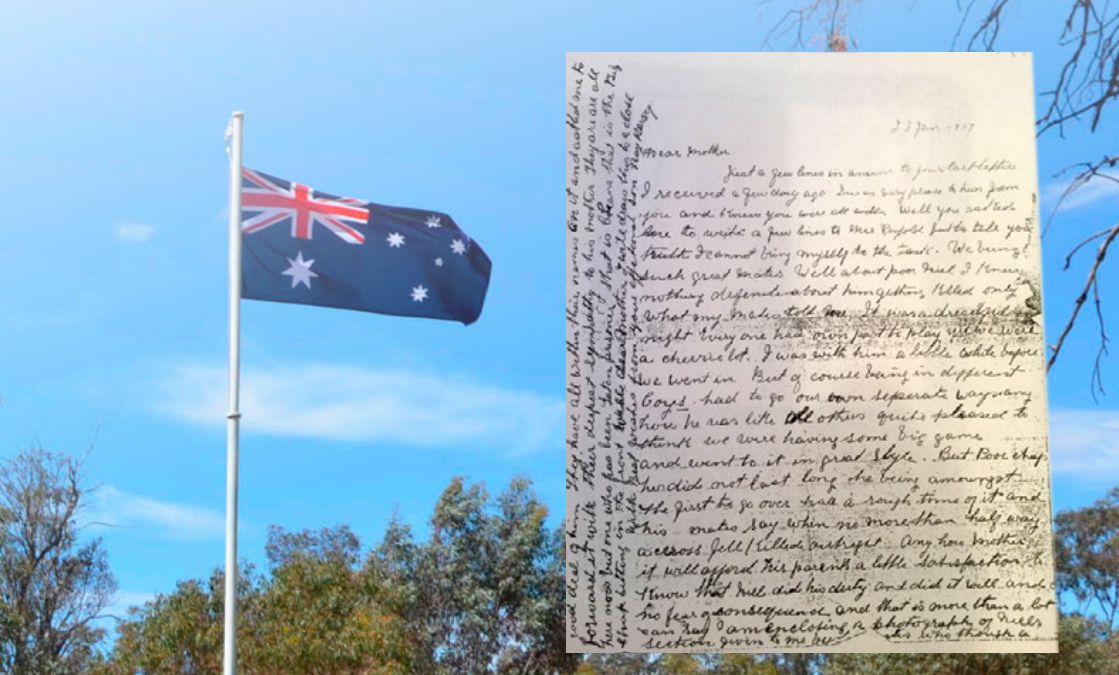 23 Jan 1917
Dear Mother
Just a few lines in answer to your last letter
I received a few day ago I was very please to hear from
you and know you were all well. Well you asked
me to write a few lines to Mrs but to tell you
truth I cannot bring myself to the task. We being
such great mates Well about poor Niel I know
nothing about him getting killed only
what my mates told me. It was a dreadful
night Every one had own part to play we were
a cheerie lot. I was with him a little while before
we went in But of course being in different
Coys. had to go our own seperate ways any
how he was like all others quite pleased to
think we were having some big game
and went to it in great style. But Poor chap
he did not last long he being amoungst
the first to go over had a rough time of it and
his mates say when no more than half way
accross fell killed outright. Any how Mother
it will afford his parents a little satisfaction to
know that Niell did his duty and did it well and
no fear of consequence and that is more than a lot
can say I am enclosing a photograph of Niells
section given to me by who though a
good deal of him. They have all written their names on it and asked me to
forward it with their deepest sympathy to his mother They are all
here now but one who has been taken prisoner that is the Big
chap sitting in the front Well dear Mother I will draw this to a close
with best wishes from your